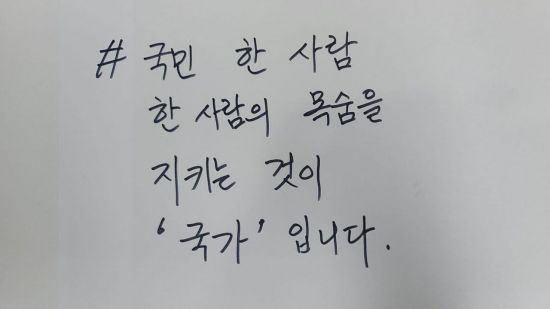 # 국민 한 사람
한 사람의 목숨을
지키는 것이
‘국가’ 입니다.